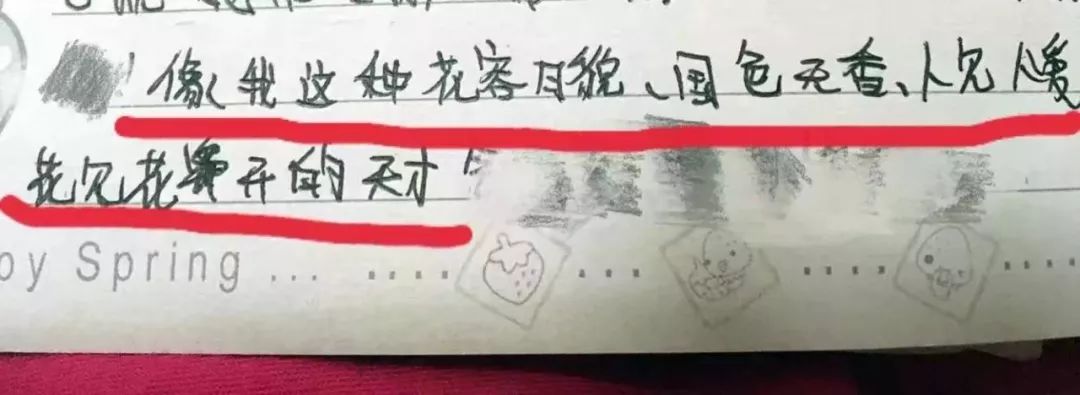 像我这种花容月貌、国色天香、人见人爱
花见花开的天才
oy Spring ...